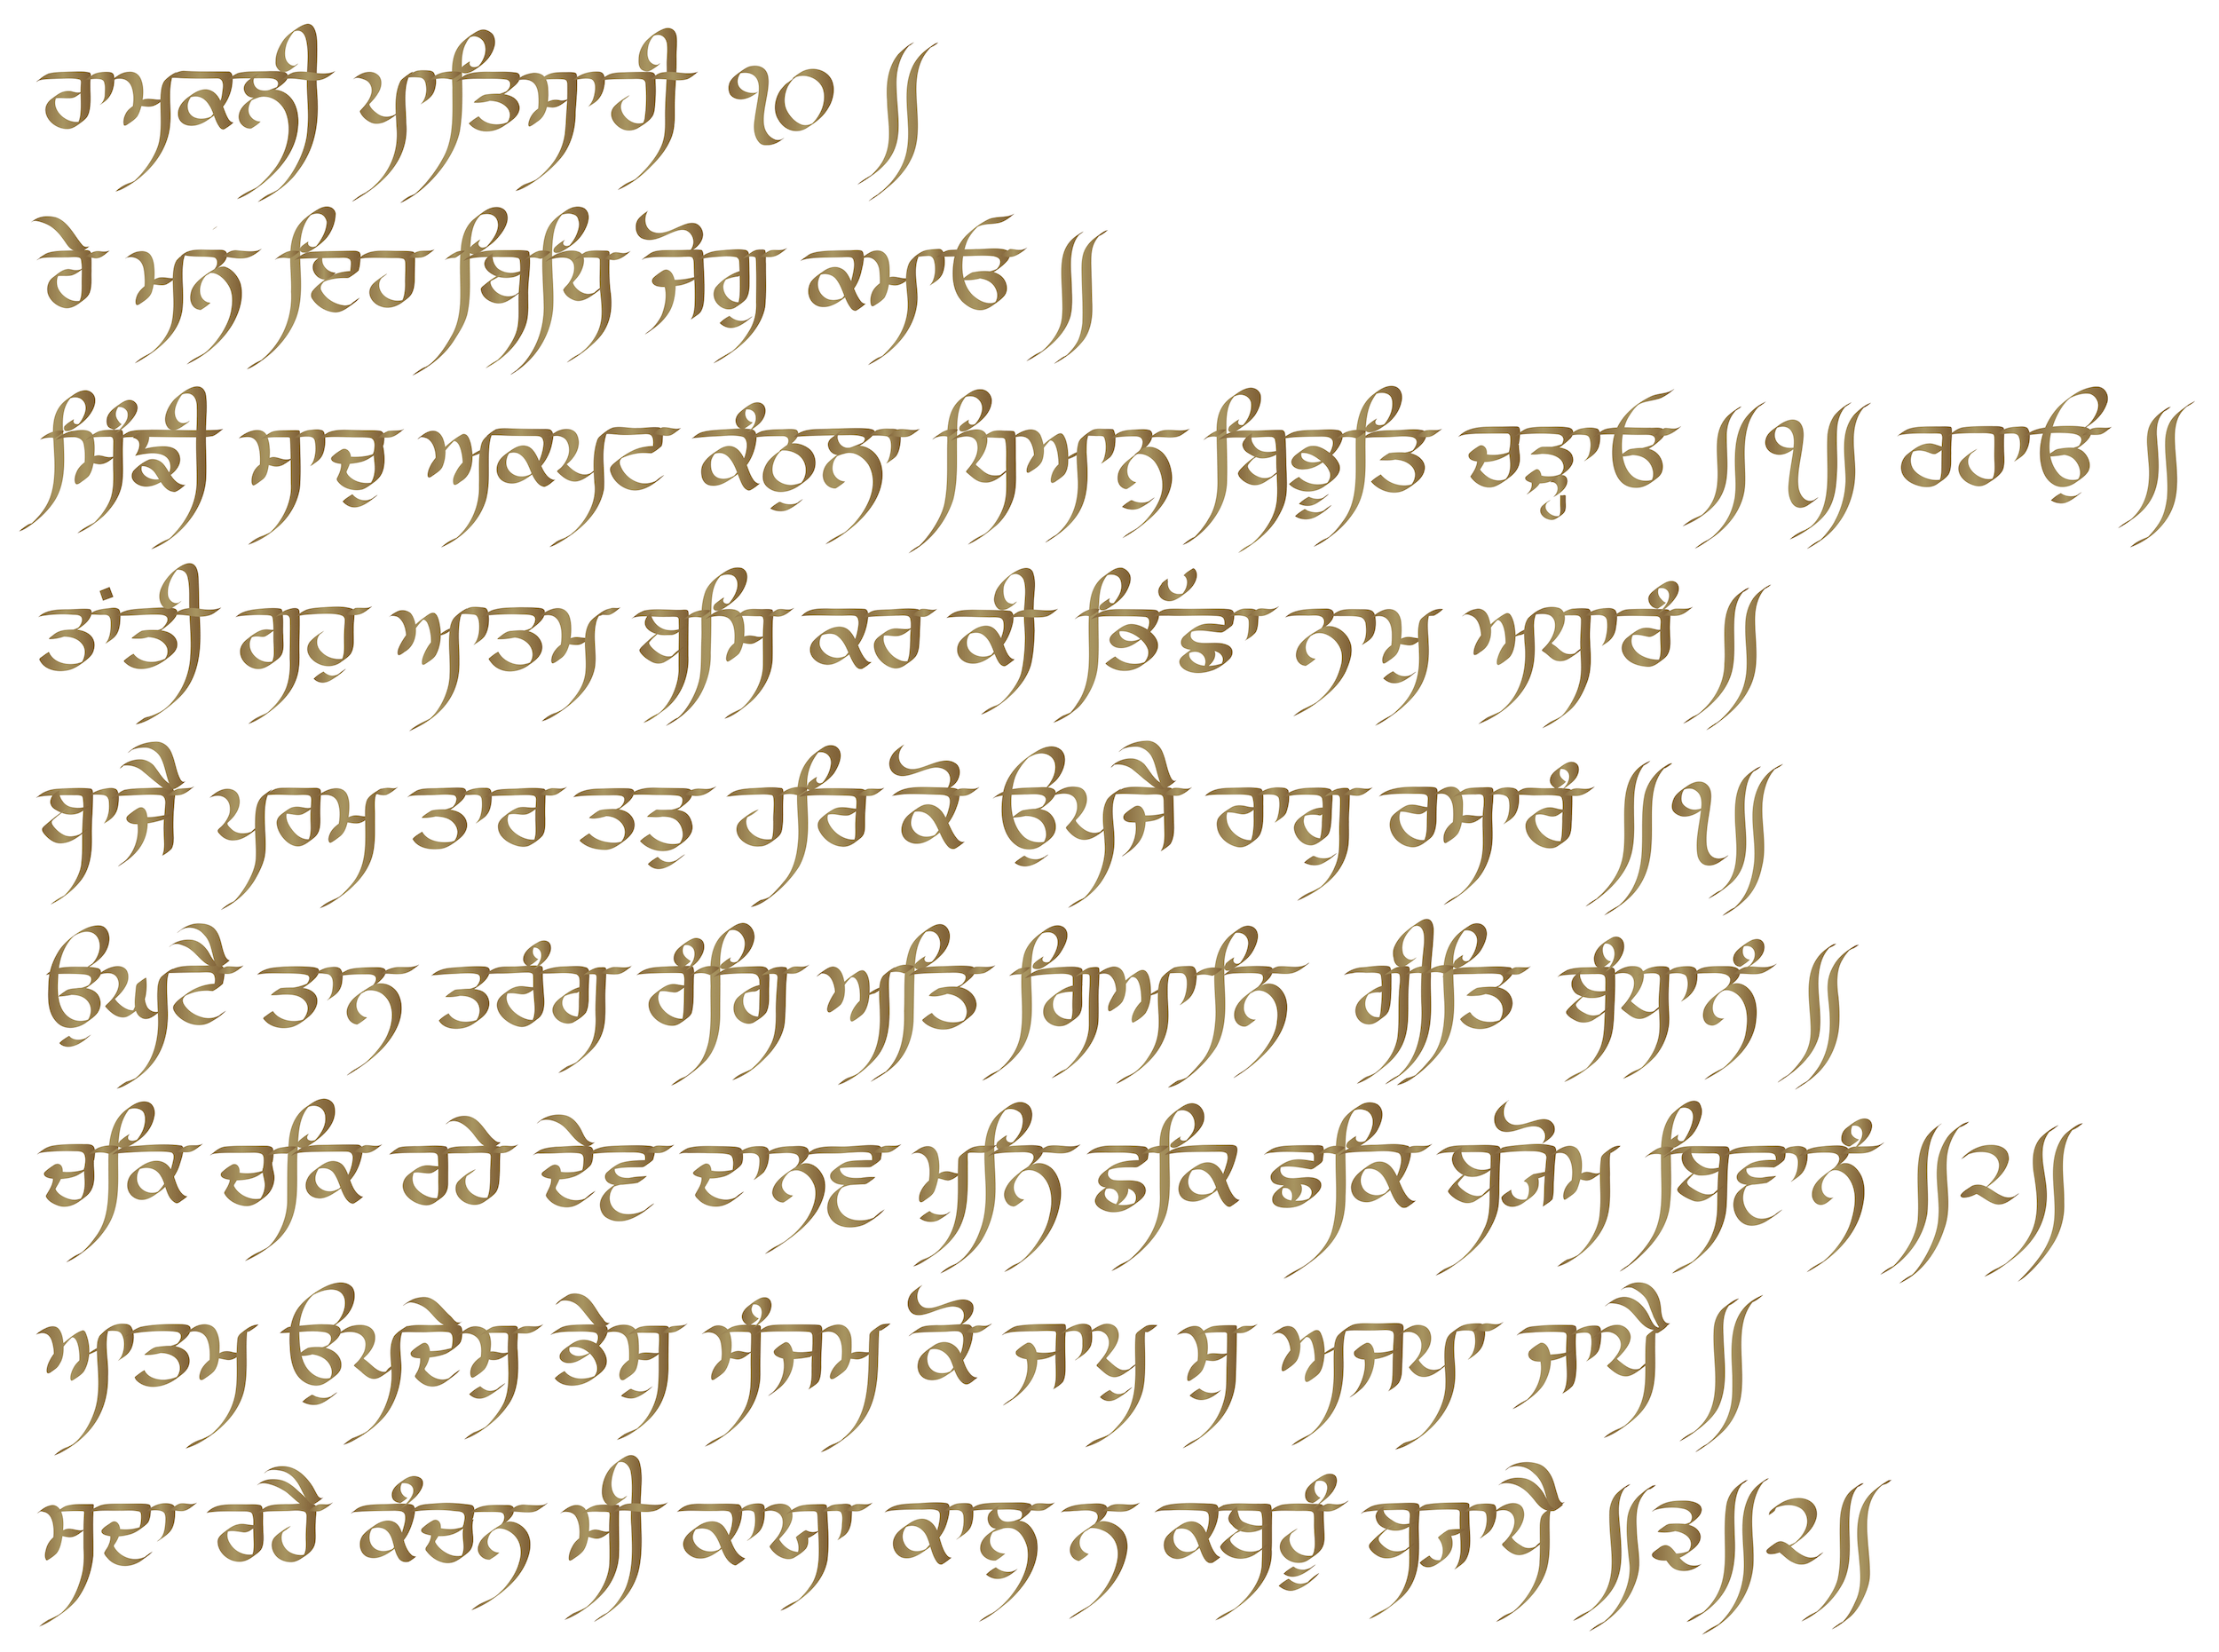 ਰਾਮਕਲੀ ਪਾਤਿਸਾਹੀ ੧੦ ॥
ਰੇ ਮਨ ਇਹ ਬਿਧਿ ਜੋਗੁ ਕਮਾਓ ॥
ਸਿੰਙੀ ਸਾਚੁ ਅਕਪਟ ਕੰਠੁਲਾ ਧਿਆਨੁ ਬਿਭੂਤਿ ਚੜ੍ਹਾਓ ॥੧॥ ਰਹਾਉ ॥
ਤਾਂਤੀ ਗਹੁ ਆਤਮ ਬਸਿ ਕਰ ਕੀ ਭਿੱਛਾ ਨਾਮੁ ਅਧਾਰੰ ॥
ਬਾਜੈ ਪਰਮ ਤਾਰ ਤਤੁ ਹਰਿ ਕੋ ਉਪਜੈ ਰਾਗੁ ਰਸਾਰੰ ॥੧॥
ਉਘਟੈ ਤਾਨ ਤਰੰਗ ਰੰਗਿ ਅਤਿ ਗਿਆਨ ਗੀਤ ਬੰਧਾਨੰ ॥
ਚਕਿ ਚਕਿ ਰਹੇ ਦੇਵ ਦਾਨਵ ਮੁਨਿ ਛਕਿ ਛਕਿ ਬ੍ਯੋਮ ਬਿਵਾਨੰ ॥੨॥
ਆਤਮ ਉਪਦੇਸੁ ਭੇਸੁ ਸੰਜਮ ਕੋ ਜਾਪ ਸੁ ਅਜਪਾ ਜਾਪੈ ॥
ਸਦਾ ਰਹੈ ਕੰਚਨ ਸੀ ਕਾਯਾ ਕਾਲੁ ਨ ਕਬਹੂੰ ਬ੍ਯਾਪੈ ॥੩॥੨॥